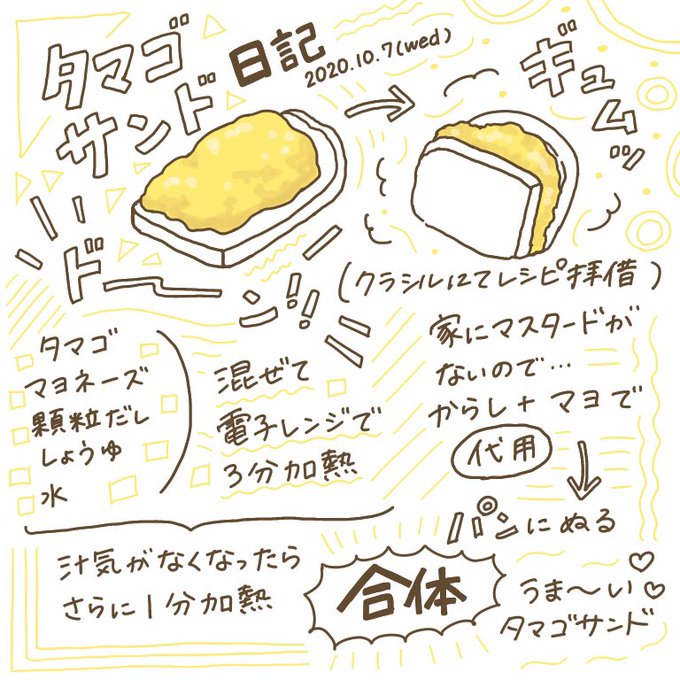 タマゴ
サンド
日記
2020.10.7(wed)
ギュムッ
ドーーン!!
(クラシルにてレシピ拝借)
タマゴ
マヨネーズ
顆粒だし
しょうゆ
水
混ぜて
電子レンジで
3分加熱
汁気がなくなったら
さらに1分加熱
家にマスタードが
ないので…
からし+マヨで
代用
パンにぬる
合体
うま〜い♡
タマゴサンド♡